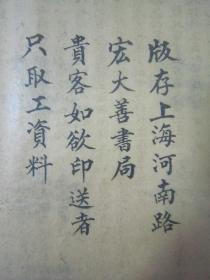 版存上海河南路
宏大善書局
貴客如欲印送者
只取工資料